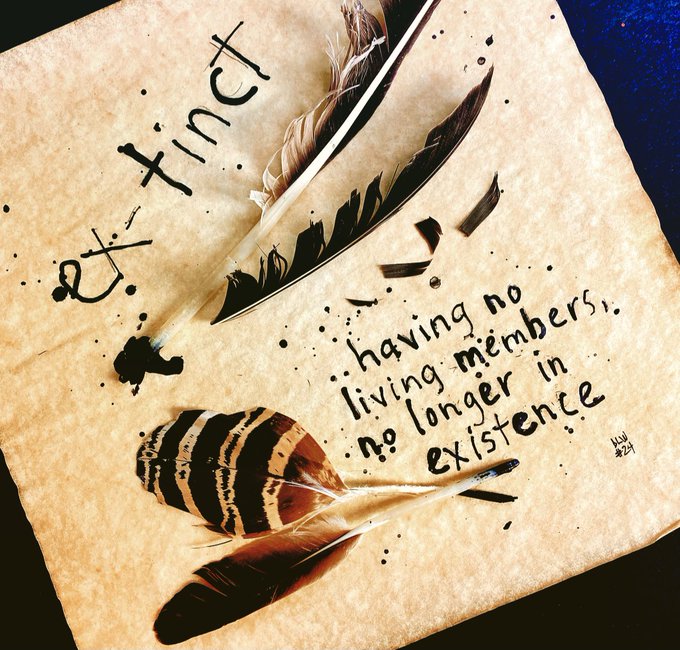 ex-tinct
having no
living members,
no longer in
existence
#24